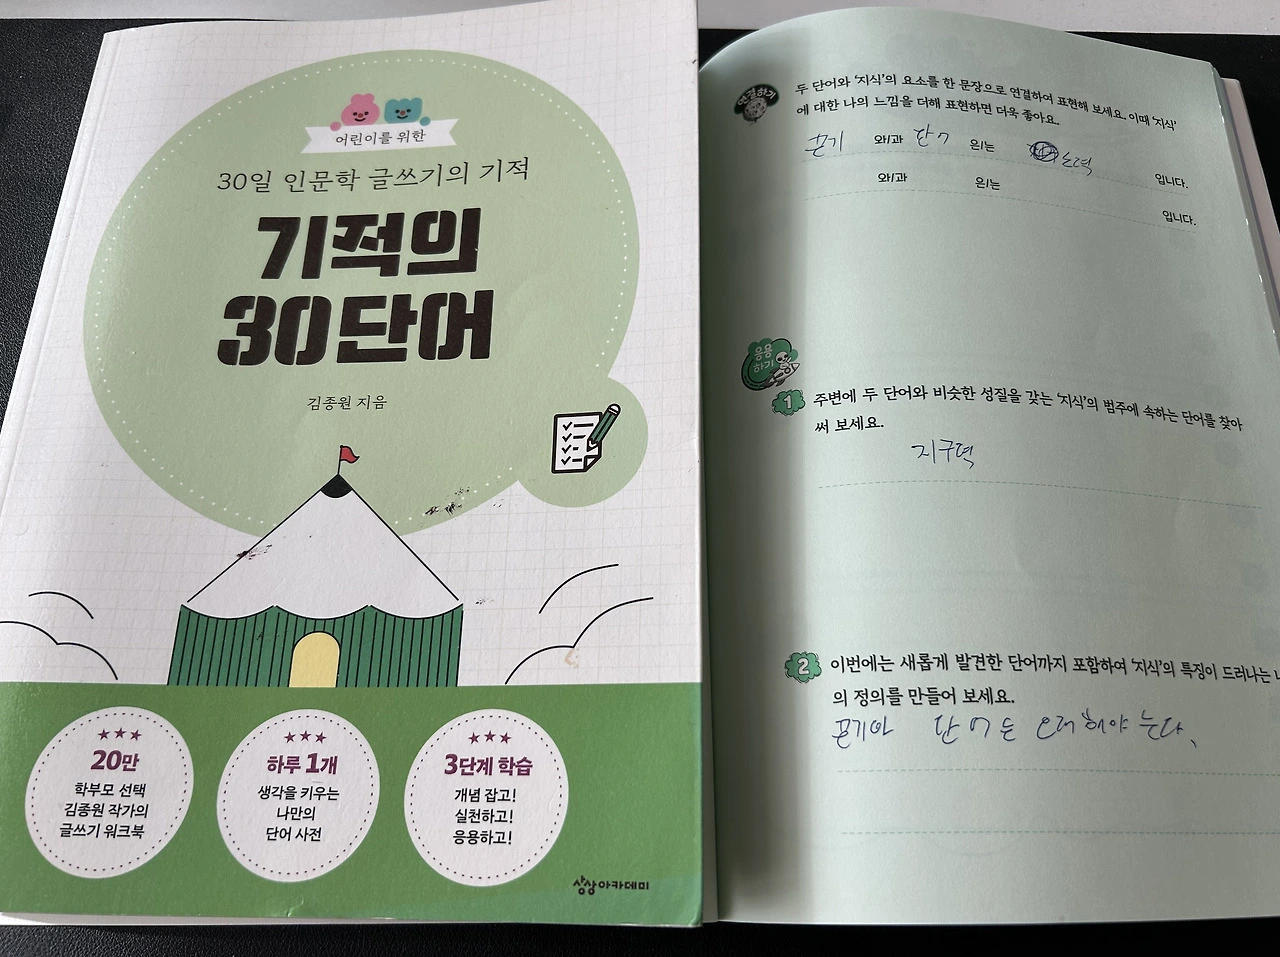 어린이를 위한
30일 인문학 글쓰기의 기적
기적의
30단어
김종원 지음
20만
학부모 선택
김종원 작가의
글쓰기 워크북
하루 1개
생각을 키우는
나만의
단어 사전
3단계 학습
개념 잡고!
실천하고!
응용하고!
상상아카데미
연결하기
두 단어와 '지식'의 요소를 한 문장으로 연결하여 표현해 보세요. 이때 '지식'
에 대한 나의 느낌을 더해 표현하면 더욱 좋아요.
끈기 와/과 단어 은/는 노력 입니다.
와/과 은/는 입니다.
응용
하기
1 주변에 두 단어와 비슷한 성질을 갖는 '지식'의 범주에 속하는 단어를 찾아
써 보세요.
지구력
2 이번에는 새롭게 발견한 단어까지 포함하여 '지식'의 특징이 드러나는 나
의 정의를 만들어 보세요.
끈기와 단어는 오래 해야 는다.